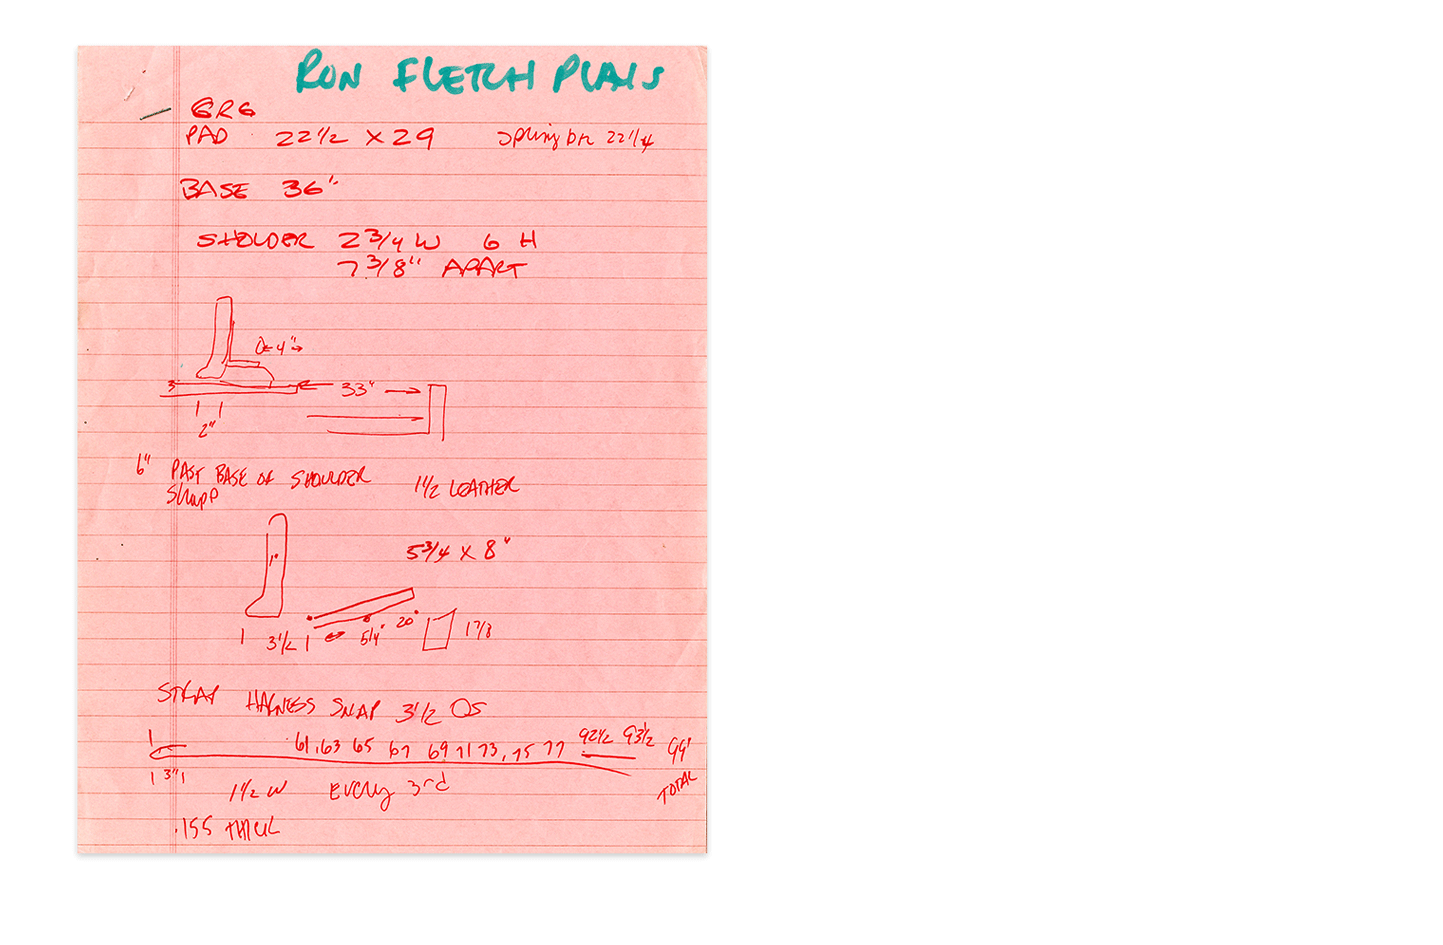 RON FLETCH PLANS
GRG
PAD 22 1/2 X 29 Spring bar 22 1/4
BASE 36"
SHOLDER 2 3/4 W 6 H
7 3/8" APART
4"
3"
33"
2"
6" PAST BASE OF SHOULDER 1 1/2 LEATHER
STRAPP
1"
5 3/4 X 8"
3 1/2 5 1/4" 20" 1 7/8
STRAP HARNESS SNAP 3 1/2 OS
61. 63 65 67 69 71 73, 75 77 92 1/2 93 1/2 99"
3"
TOTAL
1 1/2 W EVERY 3rd
.155 THICK